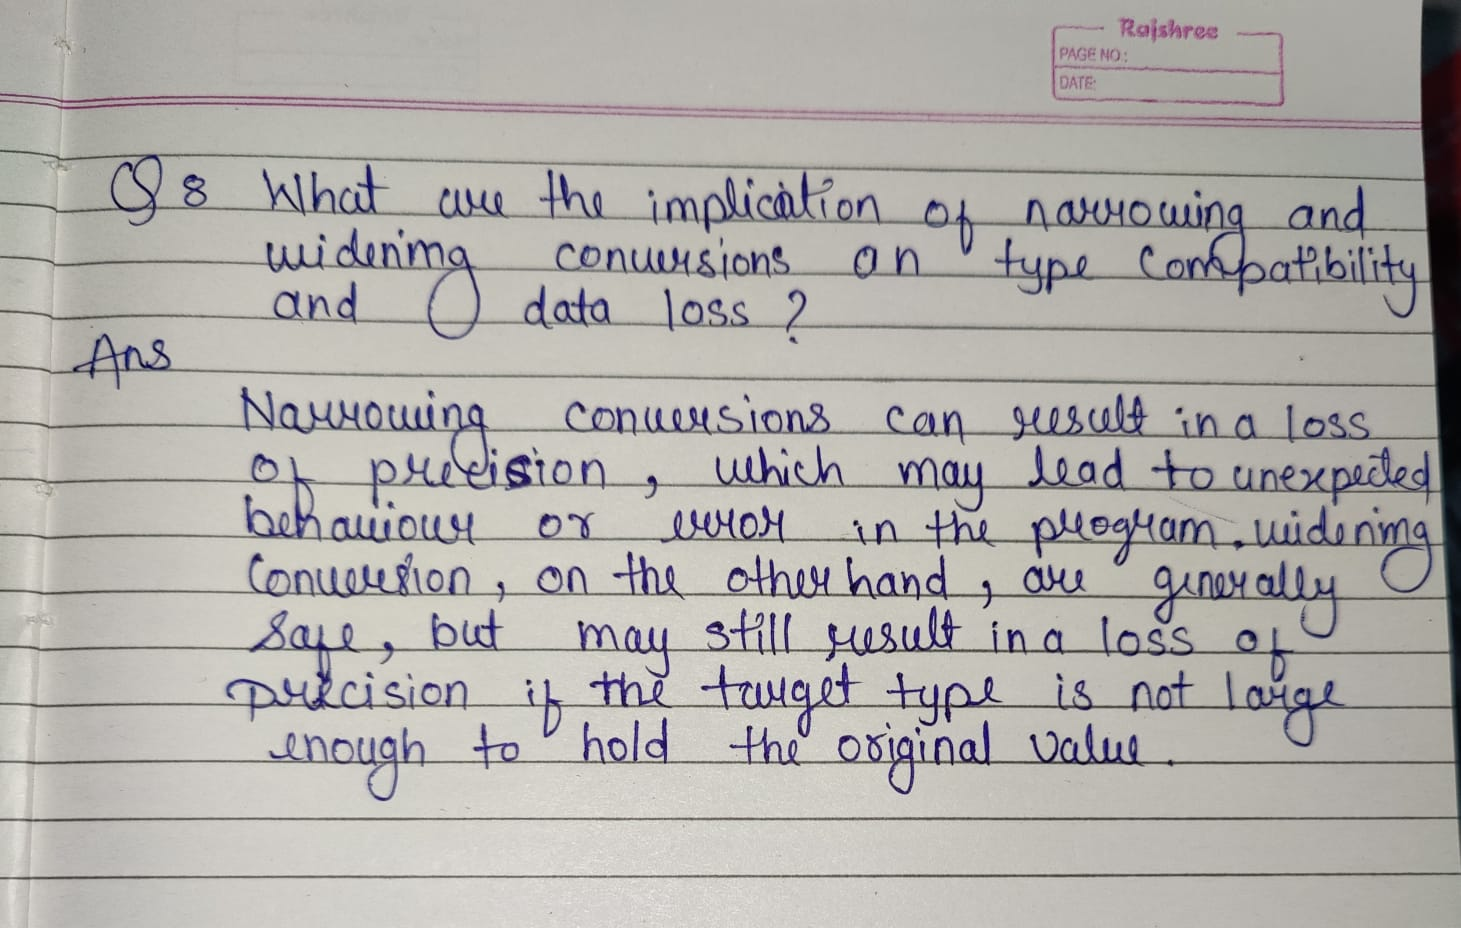 Rajshree
PAGE NO:
DATE:
Q 8 What are the implication of narrowing and
widening conversions on type compatibility
and data loss ?
Ans
Narrowing conversions can result in a loss
of precision, which may lead to unexpected
behaviour or error in the program. widening
Conversion, on the other hand, are generally
safe, but may still result in a loss of
precision if the target type is not large
enough to hold the original value.